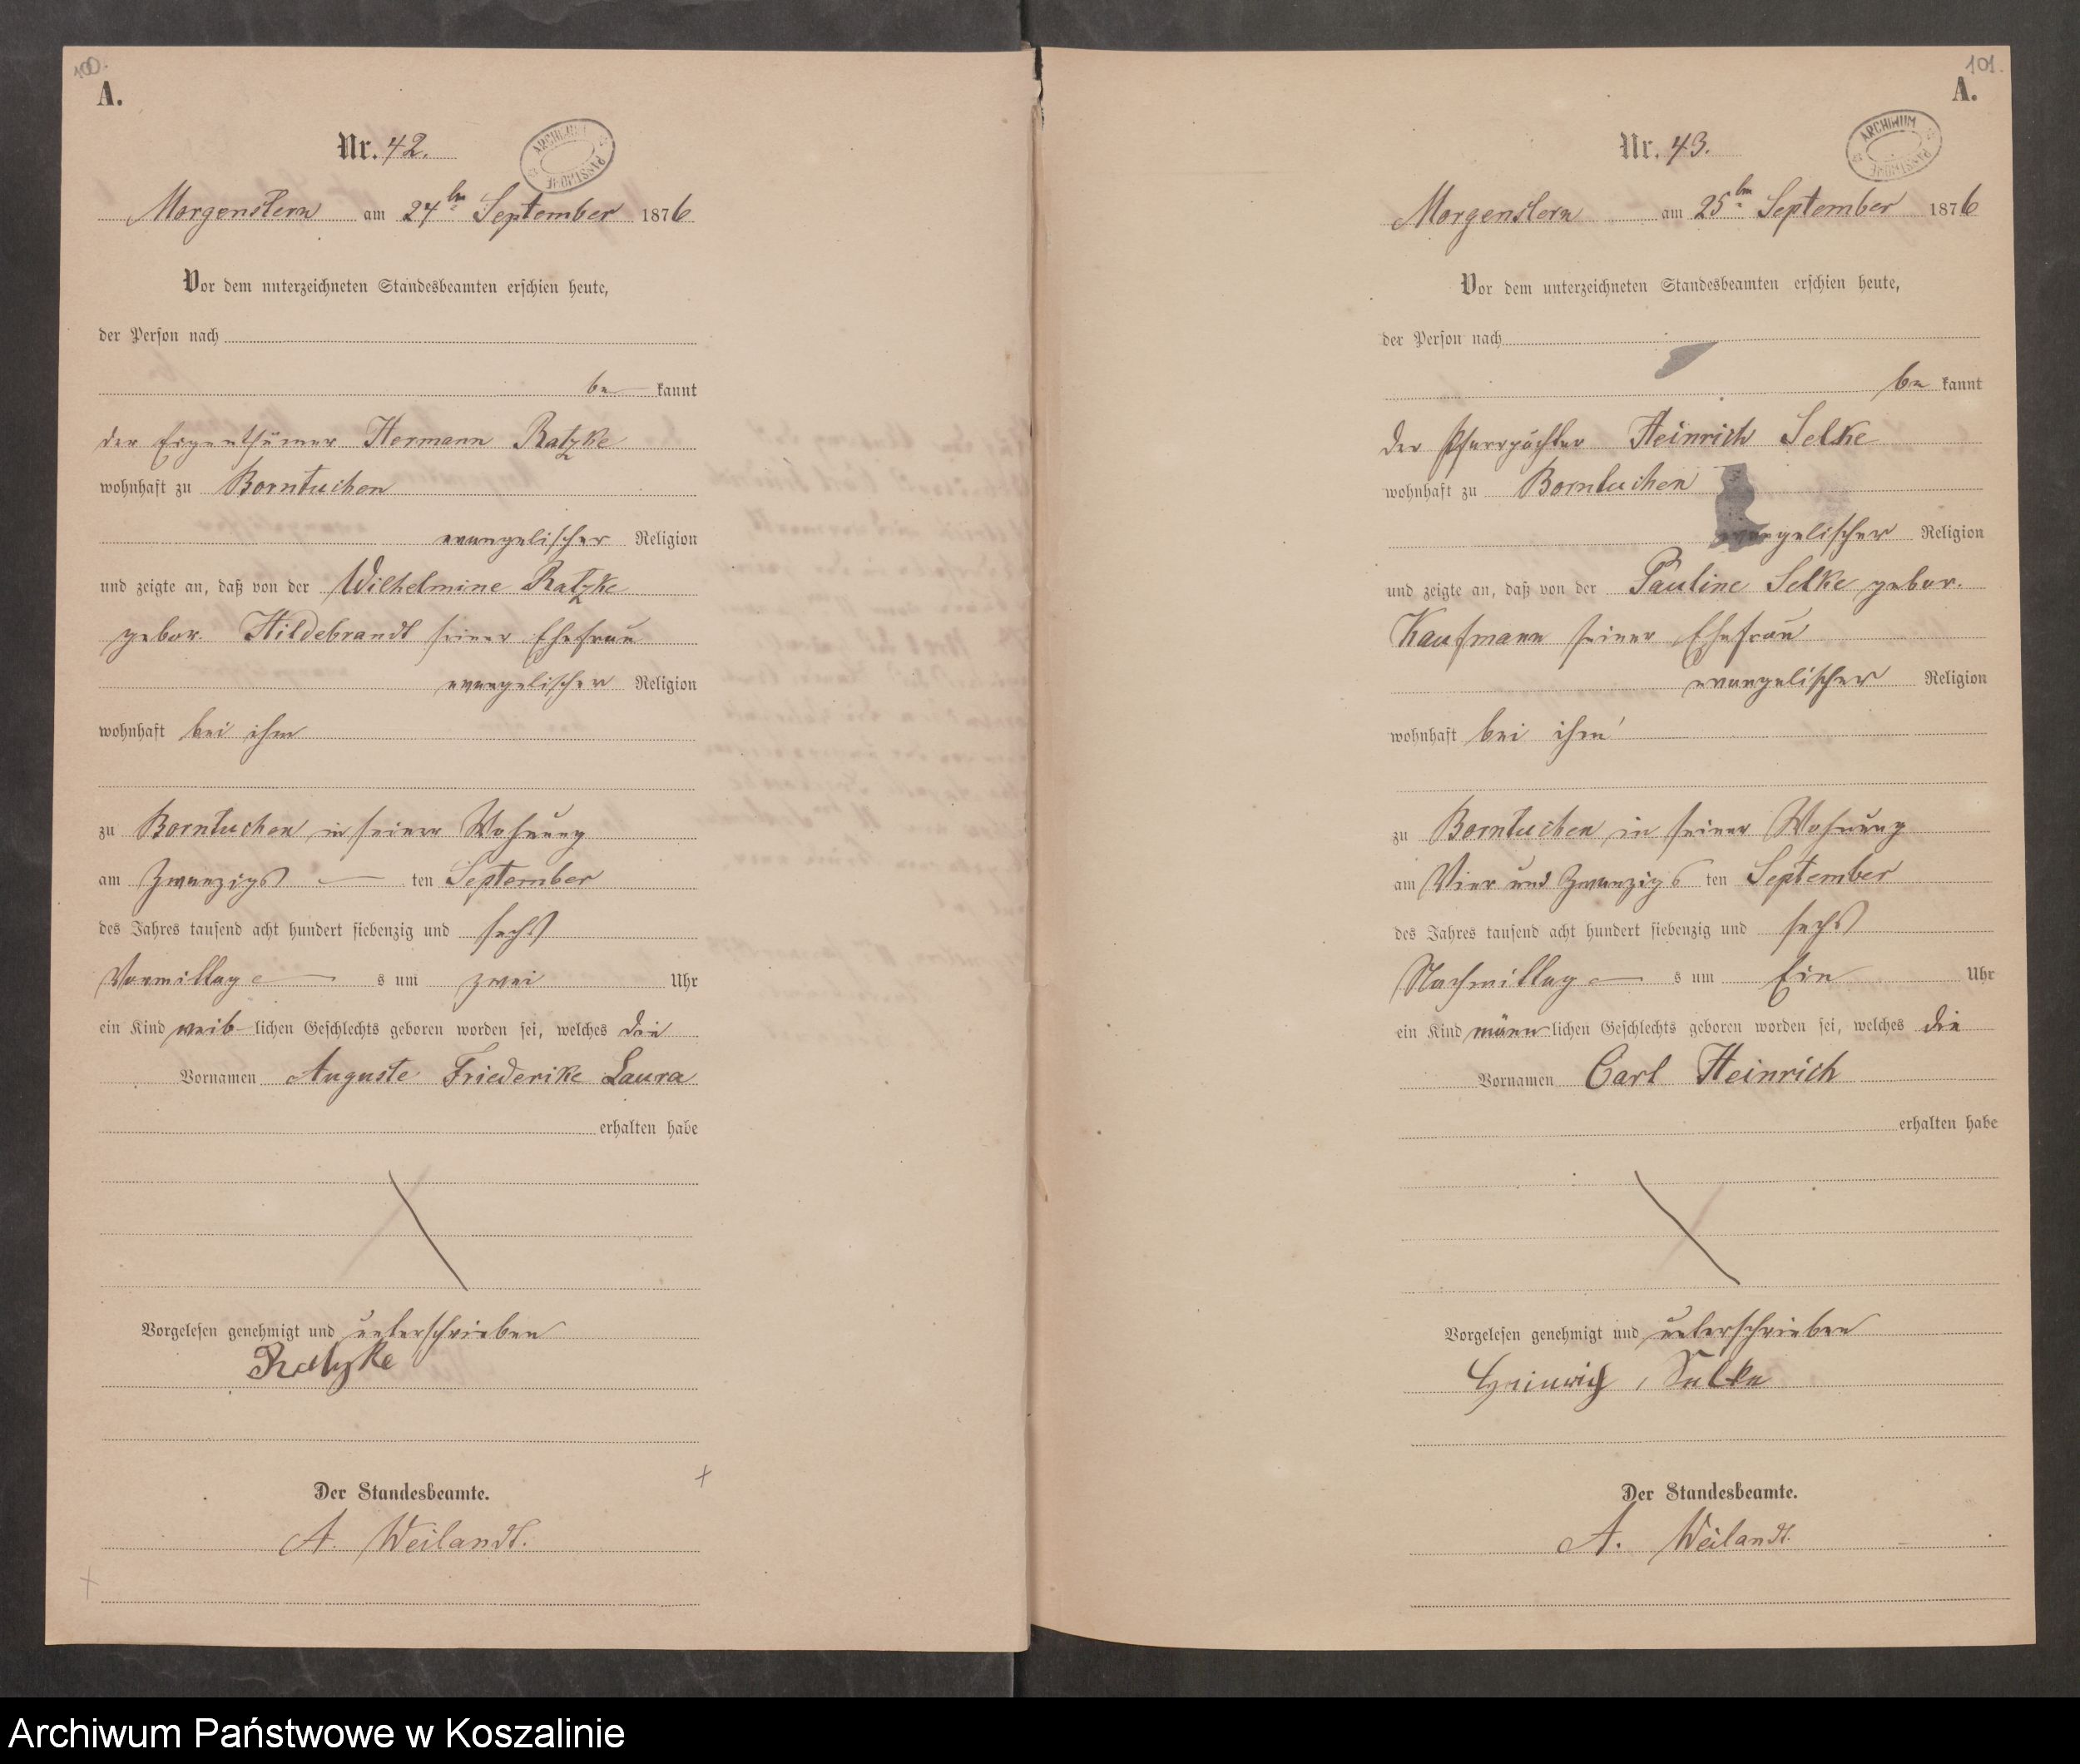 100.
A.
Nr. 42.
ARCHIWUM PAŃSTWOWE
Morgenstern am 24ten September 1876
Vor dem unterzeichneten Standesbeamten erschien heute,
der Person nach
be kannt
der Eigenthümer Hermann Ratzke
wohnhaft zu Borntuchen
evangelischer Religion
und zeigte an, daß von der Wilhelmine Ratzke
gebor. Hildebrandt seiner Ehefrau
evangelischer Religion
wohnhaft bei ihm
zu Borntuchen in seiner Wohnung
am Zwanzigs ten September
des Jahres tausend acht hundert siebenzig und sechs
Vormittag s um zwei Uhr
ein Kind weib lichen Geschlechts geboren worden sei, welches die
Vornamen Auguste Friederike Laura
erhalten habe
Vorgelesen genehmigt und unterschrieben
Ratzke
Der Standesbeamte.
A. Weilandt.
101.
A.
Nr. 43.
ARCHIWUM PAŃSTWOWE
Morgenstern am 25ten September 1876
Vor dem unterzeichneten Standesbeamten erschien heute,
der Person nach
be kannt
der Pfarrpächter Heinrich Selke
wohnhaft zu Borntuchen
evangelischer Religion
und zeigte an, daß von der Pauline Selke gebor.
Kaufmann seiner Ehefrau
evangelischer Religion
wohnhaft bei ihm
zu Borntuchen in seiner Wohnung
am Vier und Zwanzigs ten September
des Jahres tausend acht hundert siebenzig und sechs
Nachmittag s um Ein Uhr
ein Kind männ lichen Geschlechts geboren worden sei, welches die
Vornamen Carl Heinrich
erhalten habe
Vorgelesen genehmigt und unterschrieben
Heinrich Selke
Der Standesbeamte.
A. Weilandt.
Archiwum Państwowe w Koszalinie